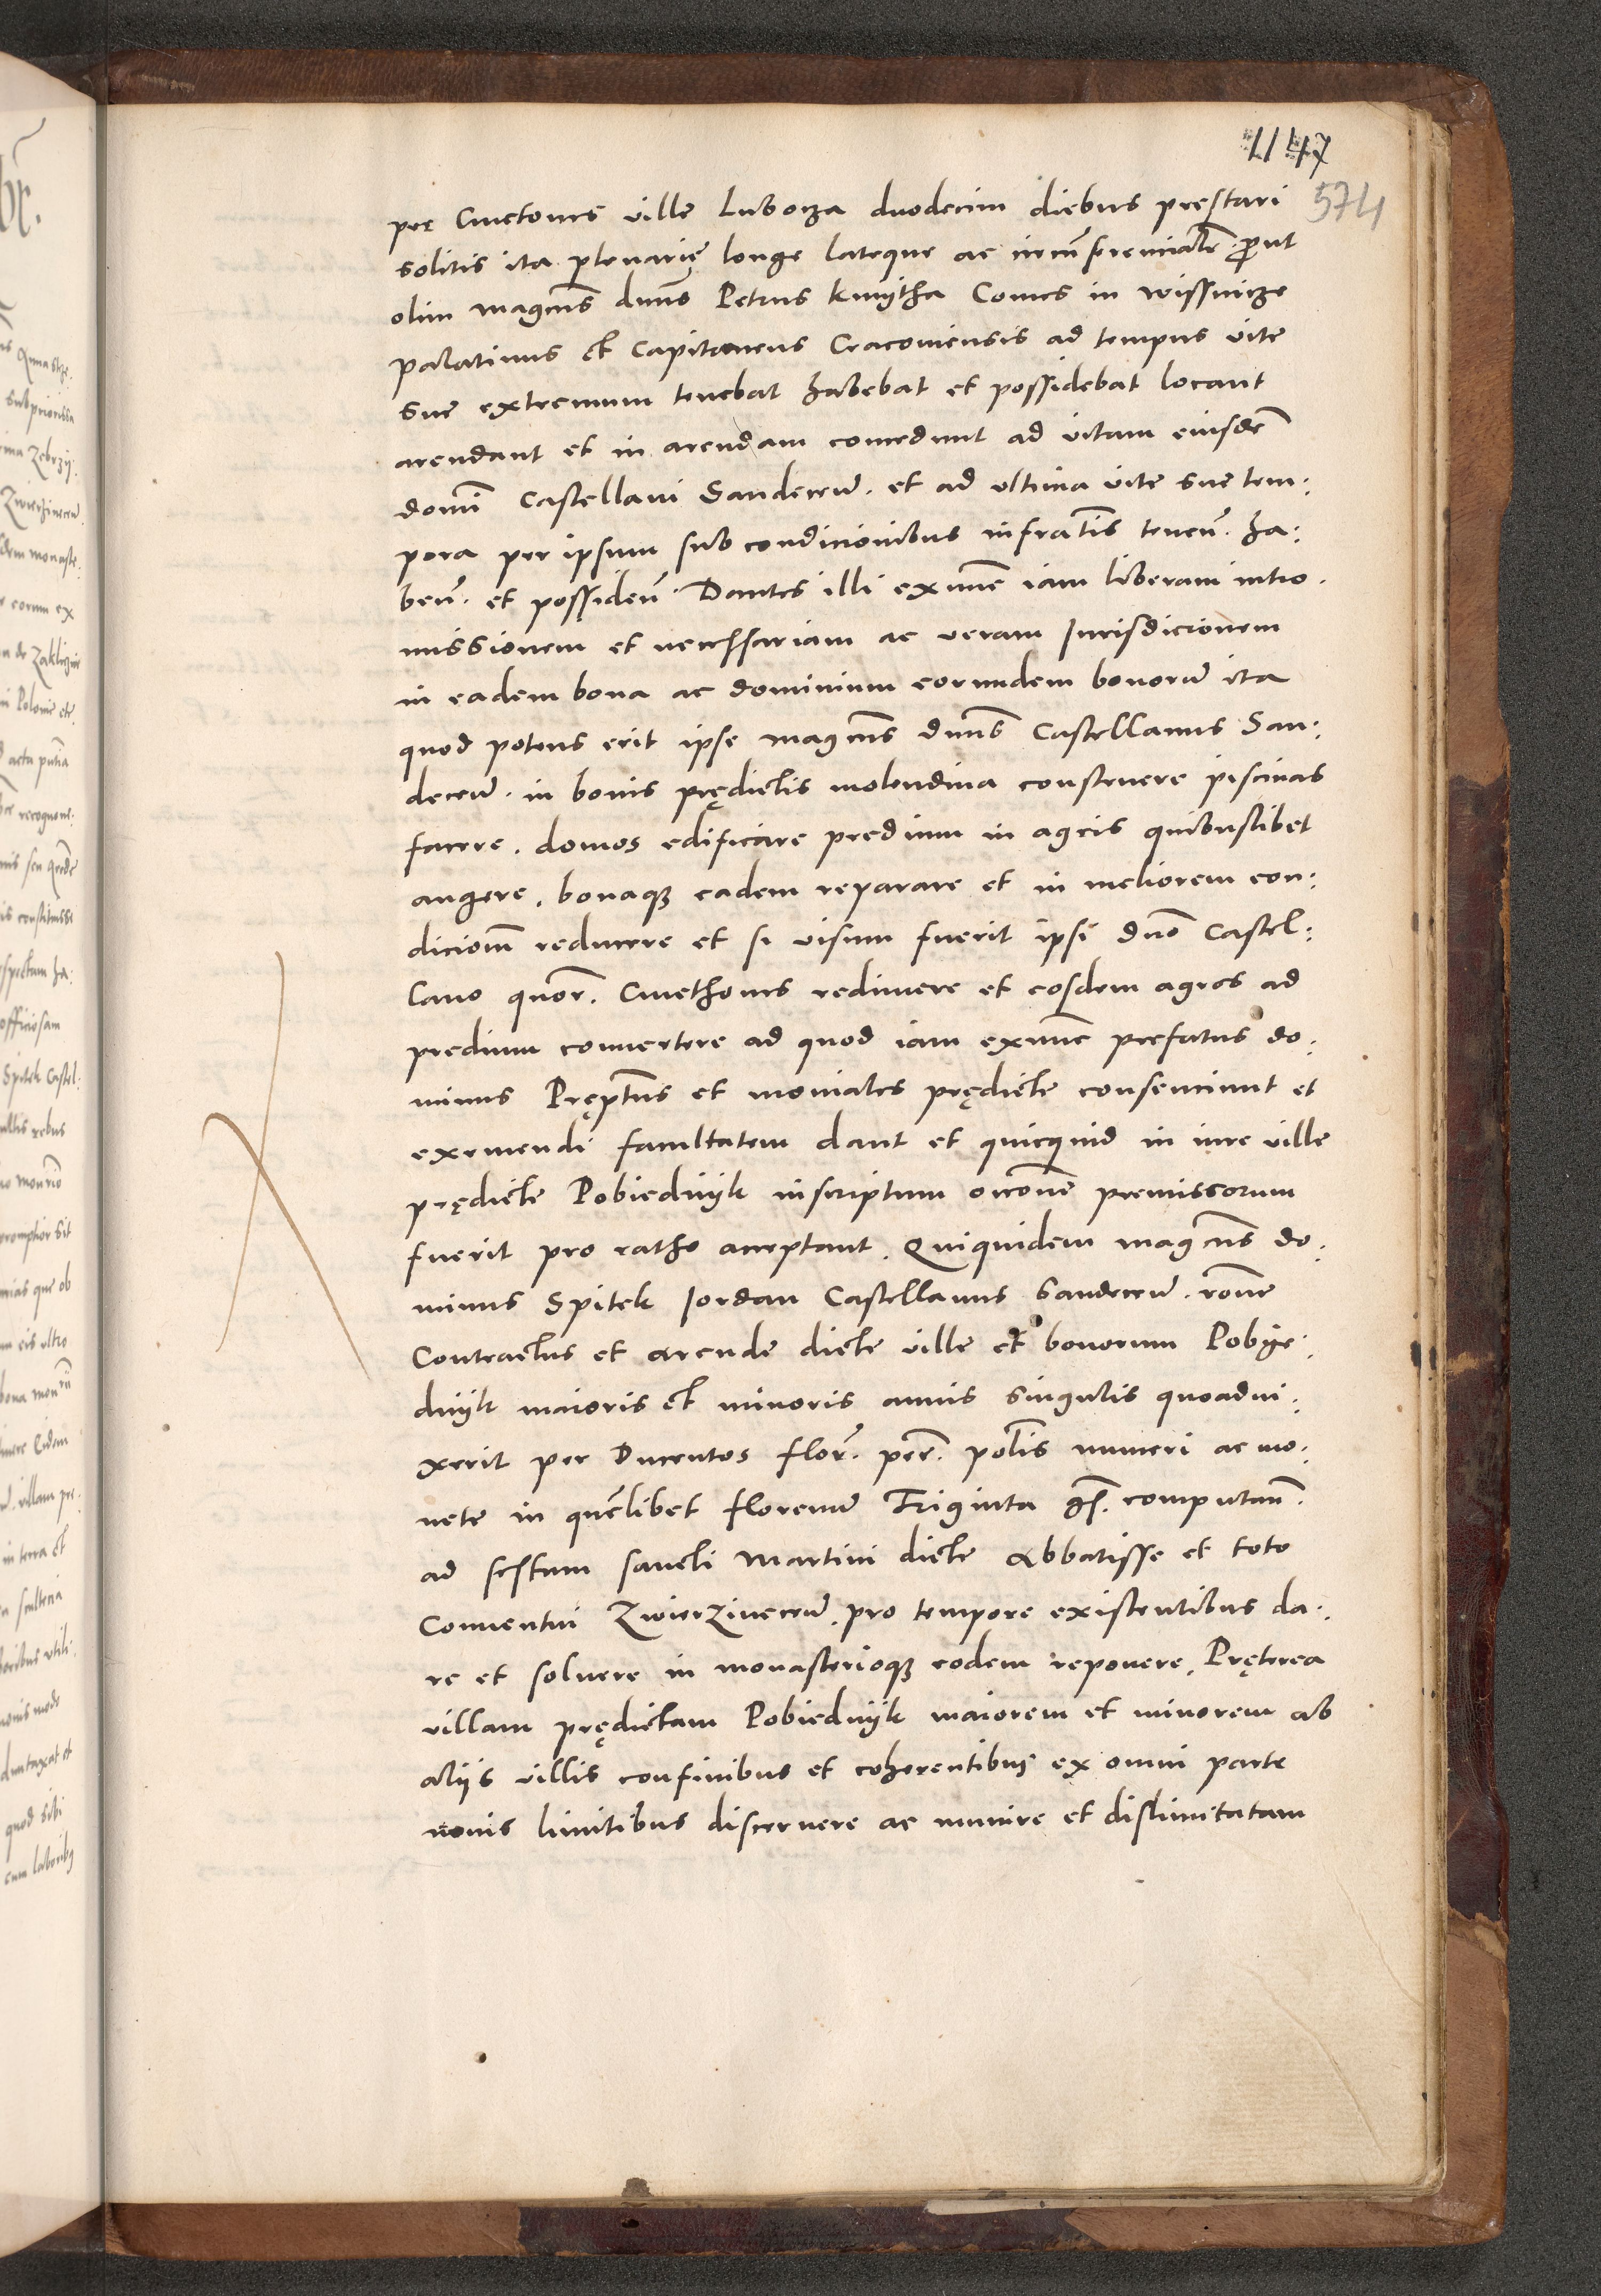 1147
574
per Cmetones ville Lubocza duodecim diebus prestari
solitis ita plenarię longe lateque ac circũferencialr̃ ꝓut
olim magcus dnus Petrus kmytha Comes in wissnicze
palatinus et Capitaneus Cracoviensis ad tempus vite
sue extremum tenebat habebat et possidebat locant
arendant et in arendam concedunt ad vitam eiusdẽ
domi Castellani Sandeceñ. et ad ultima vite sue tem:
pora per ipsum sub condicionibus infraꞇis teneñ. ha:
beñ. et possideñ. Dantes illi exnunc iam liberam intro.
missionem et necessariam ac veram Jurisdicionem
in eadem bona ac dominium eorundem bonorũ ita
quod potens erit ipse magcus dnus Castellanus San:
deceñ. in bonis prędictis molendina construere piscinas
facere. domos edificare predium in agris quibuslibet
augere. bonaqꝫ eadem reparare et in meliorem con:
dicionẽ reducere et si visum fuerit ipsi dno Castel:
lano quor̃. Cmethones redimere et eosdem agros ad
predium convertere ad quod iam exnunc prefatus do:
minus Pręptus et moniales prędicte consenciunt et
exemendi facultatem dant et quicquid in iure ville
prędicte Pobiednyk inscriptum occone premissorum
fuerit pro ratho acceptant. Quiquidem magcus do:
minus Spitek Jordan Castellanus Sandeceñ. rone
Contractus et arende dicte ville et bonorum Pobye:
dnyk maioris et minoris annis singulis quoadvi:
xerit per Ducentos flor̃. per̃. polis numeri ac mo:
nete in quẽlibet florenũ Triginta gr̃. computañ.
ad festum sancti Martini dicte Abbatisse et toto
Conventui Zwierzineceñ. pro tempore existentibus da:
re et solvere in monasterioqꝫ eodem reponere. Pręterea
villam prędictam Pobiednyk maiorem et minorem ab
aliis villis confinibus et coherentibus ex omni parte
novis limitibus discernere ac munire et dislimitatam